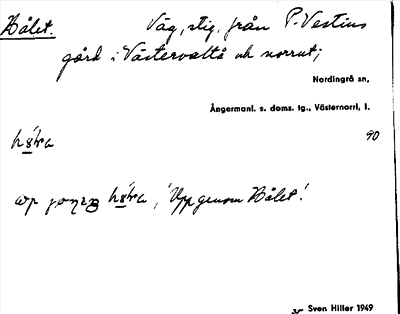 Hålet. Väg, stig, från P. Vestins
gård i Västervalta och norrut;
Nordingrå sn,
Ångermanl. s. doms. tg., Västernorrl. l.
90
'Upp genom Hålet!'
Sven Hiller 1949